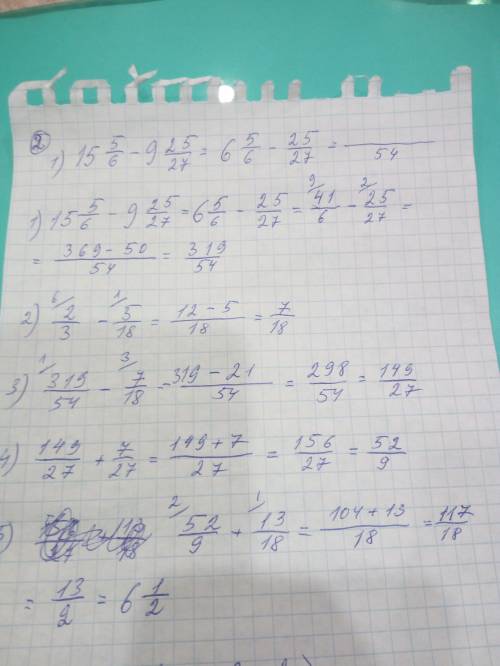 ②
1) 15 5/6 - 9 25/27 = 6 5/6 - 25/27 = /54
1) 15 5/6 - 9 25/27 = 6 5/6 - 25/27 = 9/ 41/6 - 2/ 25/27 =
= 369 - 50/54 = 319/54
2) 6/ 2/3 - 1/ 5/18 = 12 - 5/18 = 7/18
3) 1/ 319/54 - 3/ 7/18 = 319 - 21/54 = 298/54 = 149/27
4) 149/27 + 7/27 = 149 + 7/27 = 156/27 = 52/9
5) 2/ 52/9 + 1/ 13/18 = 104 + 13/18 = 117/18
= 13/2 = 6 1/2